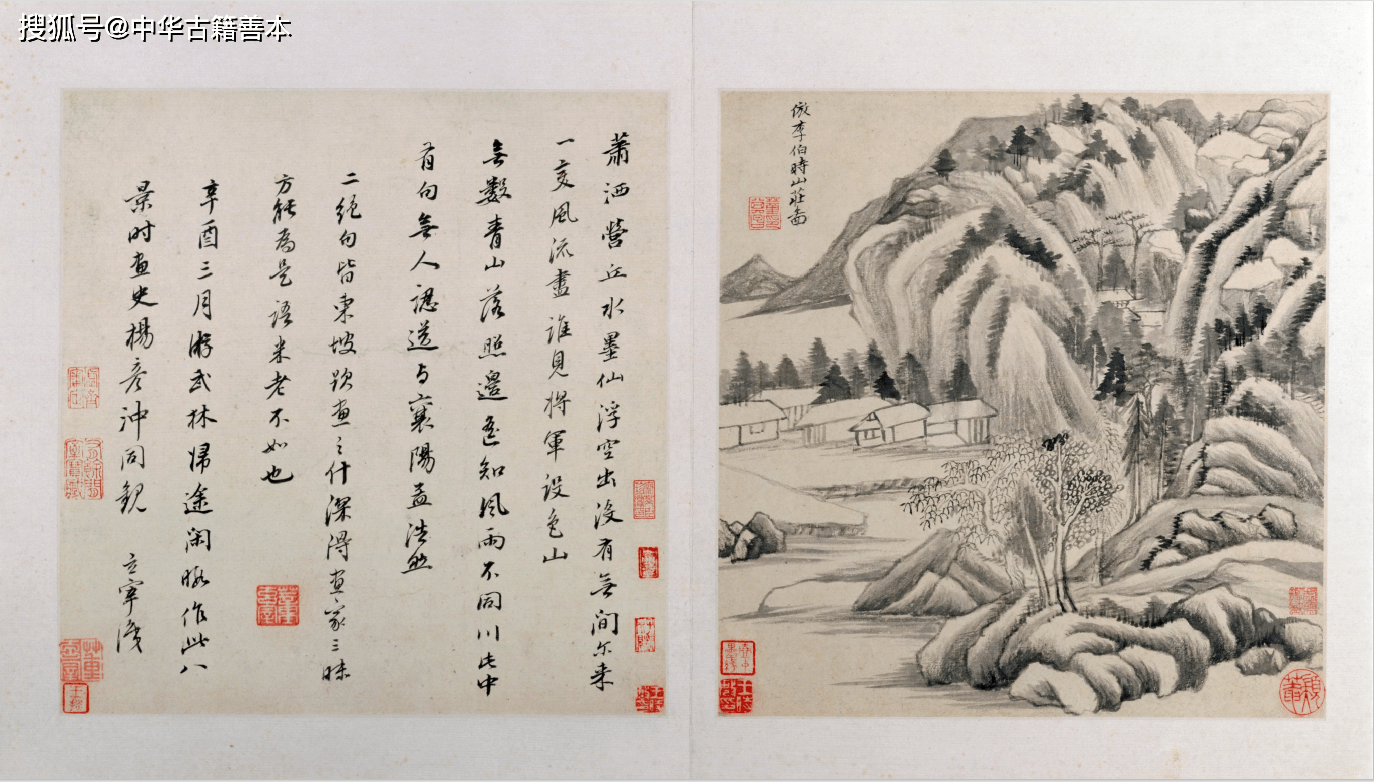 搜狐号@中华古籍善本
倣李伯時山莊啚
蕭洒營丘水墨仙浮空出沒有無間尔来
一变風流盡誰見將軍設色山
無數青山落照邊遙知風雨不同川此中
有句無人識送与襄陽孟浩然
二絕句皆東坡跋画之什深得画家三昧
方能為是語米老不如也
辛酉三月游武林婦途闲暇作此八
景时画史楊彥沖同觀 立宰識